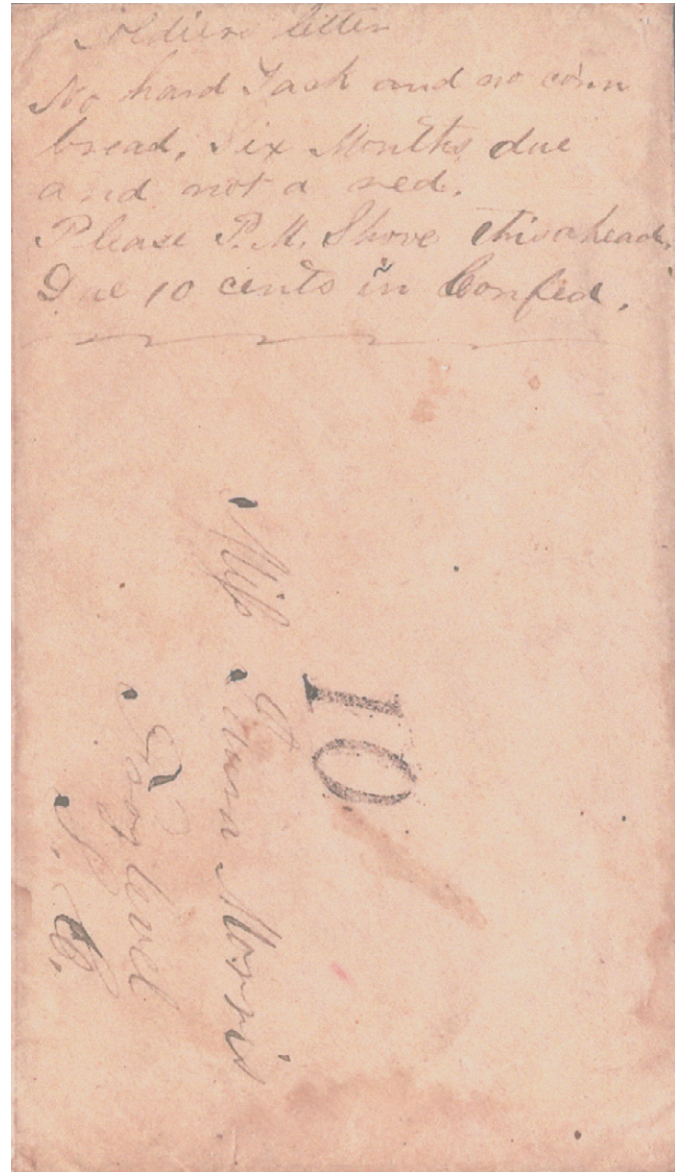 Soldiers letter
No hard Tack and no corn
bread, Six Months due
and not a red.
Please P.M. Shove this ahead,
Due 10 cents in Confed.
10
Miss Morris
level
N. C.